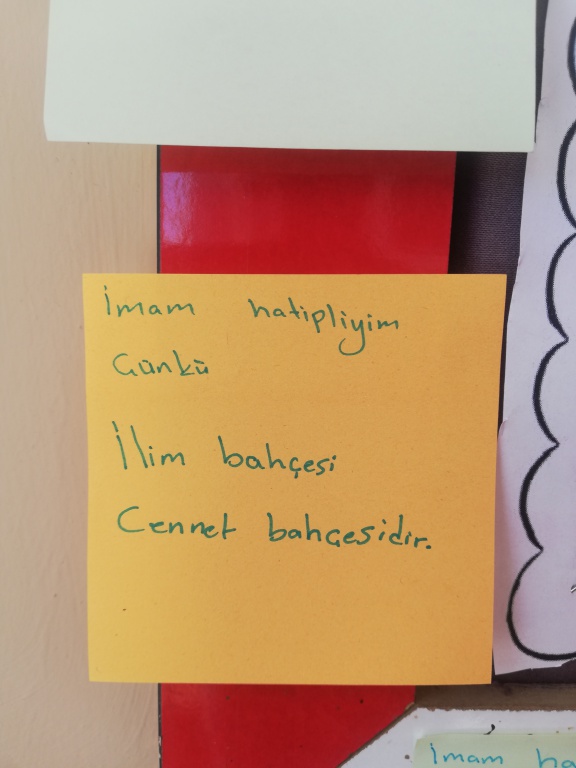 İmam hatipliyim
Günkü
İlim bahçesi
Cennet bahçesidir.
İmam ha